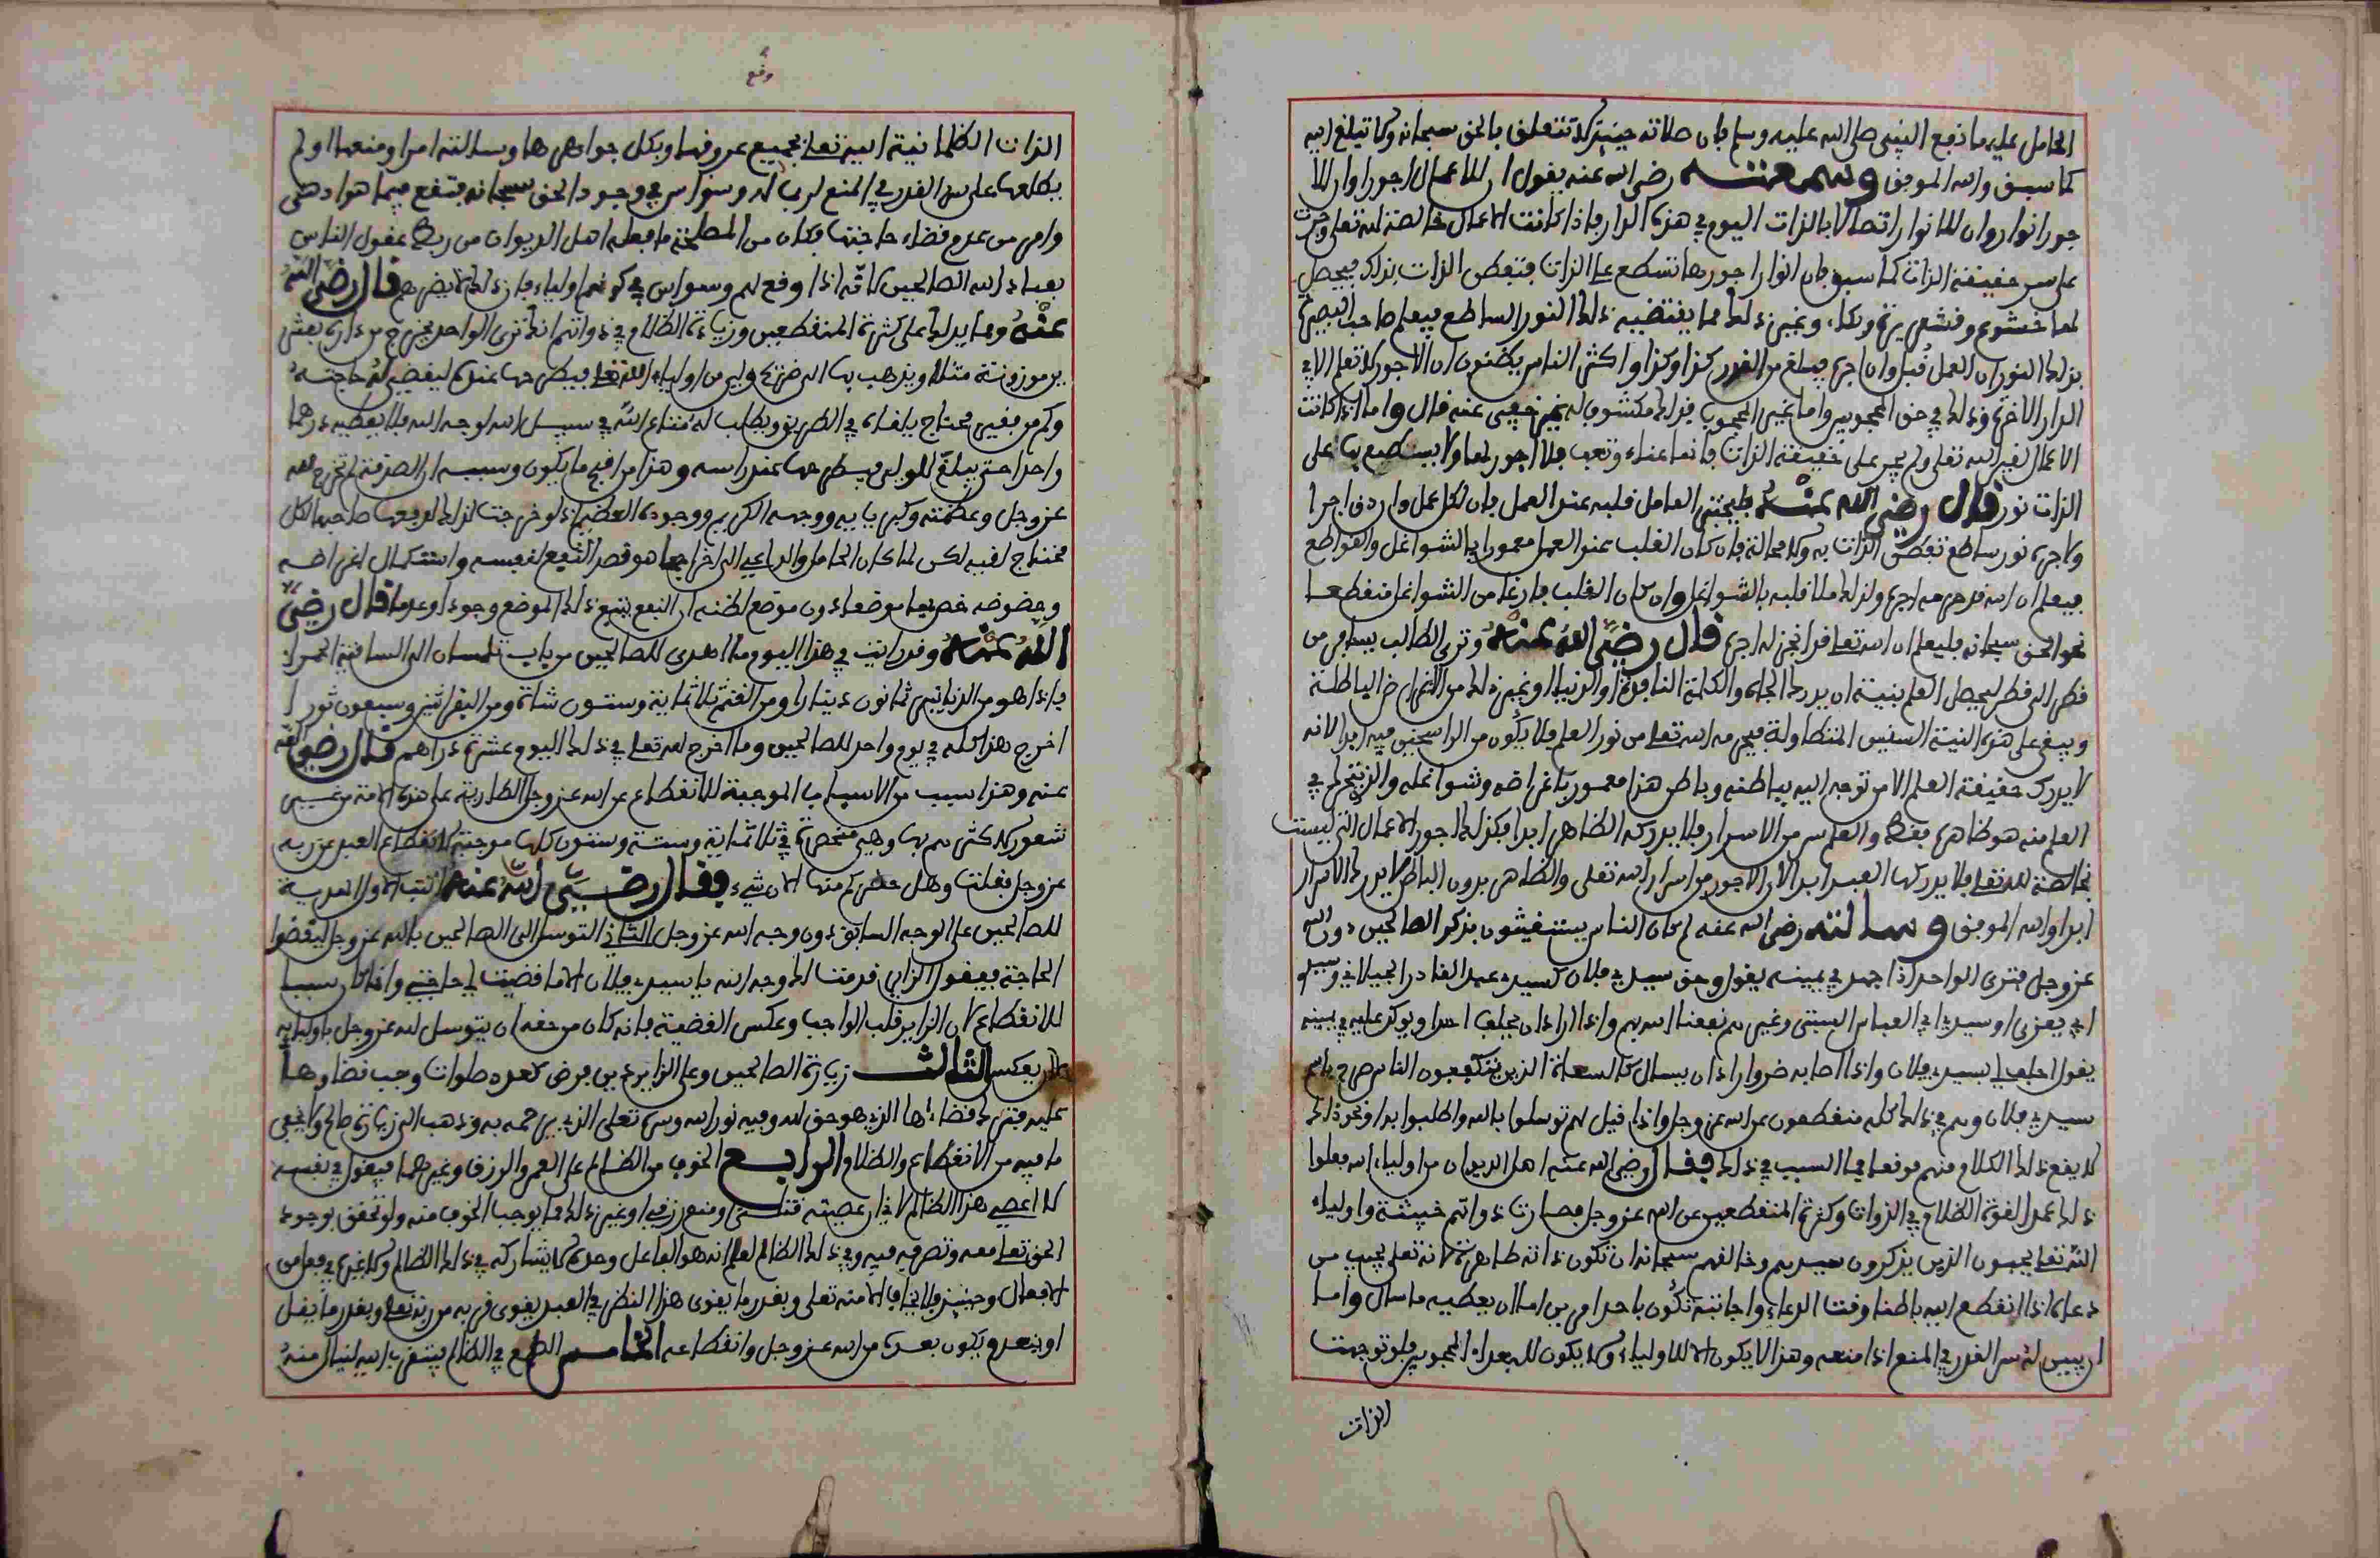 الحامل عليه ما نفع النبي صلى الله عليه وسلم فإن صلاته حينئذ لا تتعلق بالحق سبحانه ولا تبلغ إليه
كما سبق والله الموفق وسمعته رضي الله عنه يقول إن للأعمال أجورا وإن للأ
جور أنوارا وإن للأنوار اتصالا بالذات اليوم في هذه الدار فإذا كانت الأعمال خالصة لله تعلى وجرت
على سر حقيقة الذات كما سبق فإن أنوار أجورها تسطع على الذات فتعطى الذات بذلك فيحصل
لها خشوع وقشعريرة وبكاء وغير ذلك مما يقتضيه ذلك النور الساطع فيعلم صاحب البصيرة
بذلك النور أن العمل قبل وأن أجره يبلغ من القدر كذا وكذا وأكثر الناس يظنون أن الأجور لا تعلم إلا في
الدار الآخرة وذلك في حق المحجوبين وأما غير المحجوب فذلك مكشوف له غير خفي عنه قال وأما إذا كانت
الأعمال لغير الله تعلى ولم تجر على حقيقة الذات فإنها عناء وتعب فلا أجور لها ولا يسطع بها على
الذات نور قال رضي الله عنه فليختبر العامل قلبه عند العمل فإن لكل عمل وإن دق أجرا
ولأجره نور ساطع تعطى الذات به ولا محالة فإن كان القلب عند العمل معمورا بالشواغل والقواطع
فيعلم أن الله قد حرمه أجره ولذلك ملأ قلبه بالشواغل وإن كان القلب فارغا من الشواغل منقطعا
نحو الحق سبحانه فليعلم أن الله تعلى قد أنجز له أجره قال رضي الله عنه وترى الطالب يسافر من
قطر إلى قطر ليحصل العلم بنية أن يدرك الجاه والكلمة النافذة أو الدنيا أو غير ذلك من الأغراض الباطلة
ويبقى على هذه النية السنين المتطاولة فيحرمه الله تعلى من نور العلم فلا يكون من الراسخين فيه أبدا لأنه
لا يدرك حقيقة العلم إلا من توجه إليه بباطنه وباطن هذا معمور بأغراضه وشواغله والذي يتحرك في
العلم منه هو ظاهره فقط والعلم سر من الأسرار فلا يدركه الظاهر أبدا فكذلك أجور الأعمال التي ليست
خالصة لله تعلى فلا يدركها العبد أبدا لأن الأجور من أسرار الله تعلى والظاهر بدون الباطن لا يدرك الأسرار
أبدا والله الموفق وسألته رضي الله عنه لم كان الناس يستغيثون بذكر الصالحين دون الله
عز وجل فترى الواحد إذا جهد في يمينه يقول وحق سيدي فلان كسيدي عبد القادر الجيلاني وسيدي
أبي يعزى أو سيدي أبي العباس السبتي وغيرهم نفعنا الله بهم وإذا أراد أن يحلف أحدا ويوكد عليه في يمينه
يقول احلف لي بسيدي فلان وإذا أصابه ضر وأراد أن يسأل كالسعاة الذين يتكففون الناس صرح باسم
سيدي فلان وهم في ذلك كله منقطعون عن الله عز وجل وإذا قيل لهم توسلوا بالله واطلبوا به أو نحو ذلك
لا يقع ذلك الكلام منهم موقعا فما السبب في ذلك فقال رضي الله عنه أهل الديوان من أولياء الله فعلوا
ذلك عمدا لقوة الظلام في الذوات وكثرة المنقطعين عن الله عز وجل فصارت ذواتهم خبيثة وأولياء
الله تعلى يحبون الذين يذكرون سيدهم وخالقهم سبحانه أن تكون ذاته طاهرة لأنه تعلى يجيب من
دعاه إذا انقطع إليه باطنا وقت الدعاء وإجابته تكون بأحد أمرين إما أن يعطيه ما سأل وإما
أن يبين له سر القدر في المنع إذا منعه وهذا لا يكون إلا للأولياء ولا يكون للبعداء المحجوبين فلو توجهت
الذات
وقع
الذات الظلمانية إليه تعلى بجميع عروقها وبكل جواهرها وسألته أمرا ومنعها أو لم
يطلعها على سر القدر في المنع لربما له وسواس في وجود الحق سبحانه فتقع فيما هو أدهى
وأمر من عدم قضاء حاجتها فكان من المصلحة ما فعله أهل الديوان من ربط عقول الناس
بعباد الله الصالحين لأنه إذا وقع لهم وسواس في كونهم أولياء فإن ذلك لا يضرهم قال رضي الله
عنه ومما يدلك على كثرة المنقطعين وزيادة الظلام في ذواتهم أنك ترى الواحد يخرج من داره بعشر
ين موزونة مثلا ويذهب بها إلى ضريح ولي من أولياء الله تعلى فيطرحها عنده ليقضي له حاجته
وكم من فقير محتاج يلقاه في الطريق ويطلب له متاع الله في سبيل الله لوجه الله فلا يعطيه درهما
واحدا حتى يبلغ للولي فيطرحها عند رأسه وهذا من أقبح ما يكون وسببه أن الصدقة لم تخرج لله
عز وجل وعظمته وكبريائه ووجهه الكريم ووجوده العظيم إذ لو خرجت لذلك لدفعها صاحبها لكل
محتاج لقيه لكن لما كان الحامل والداعي إلى إخراجها هو قصد النفع لنفسه واستكمال أغراضه
وحظوظه خص بها موضعا دون موضع لظنه أن النفع يتبع ذلك الموضع وجودا وعدما قال رضي
الله عنه وقد رأيت في هذا اليوم ما أهدي للصالحين من باب تلمسان إلى الساقية الحمراء
فإذا هو من الدنانير ثمانون دينارا ومن الغنم ثلاثمائة وستون شاة ومن البقر اثنين وسبعون ثورا
أخرج هذا كله في يوم واحد للصالحين وما أخرج لله تعلى في ذلك اليوم عشرة دراهم قال رضي الله
عنه وهذا سبب من الأسباب الموجبة للانقطاع عن الله عز وجل الطارئة على هذه الأمة من غير
شعور لأكثرهم بها وهي منحصرة في ثلاثمائة وستة وستون كلها موجبة لانقطاع العبد عن ربه
عز وجل فقلت وهل حضركم منها الآن شيء فقال رضي الله عنه اكتب الأول الهدية
للصالحين على الوجه السابق دون وجه الله عز وجل الثاني التوسل إلى الصالحين بالله عز وجل ليقضوا
الحاجة فيقول الزائر قدمت لك وجه الله يا سيدي فلان إلا ما قضيت لي حاجتي وإنما كان سببا
للانقطاع لأن الزائر قلب الواجب وعكس القضية فإنه كان من حقه أن يتوسل لله عز وجل بأوليائه
لا أن يعكس الثالث زيارة الصالحين وعلى الزائر دين فرض كعدد صلوات وجب قضاؤها
عليه فيترك قضاءها الذي هو حق الله وفيه نور الله وسره تعلى الذي يرحمه به وذهب إلى زيارة صالح ولا يخفى
ما فيه من الانقطاع والظلام الرابع الخوف من الظالم على العمر والرزق وغيرهما فيقول في نفسه
لا أعصي هذا الظالم لأني إن عصيته قتلني ومنع رزقي أو غير ذلك مما يوجب الخوف منه ولو تحقق بوجود
الحق تعلى معه وتصرفه فيه وفي ذلك الظالم لعلم أنه هو الفاعل وحده لا يشاركه في ذلك الظالم ولا غيره في فعل من
الأفعال وحينئذ فلا يخاف إلا منه تعلى وبقدر ما يقوى هذا النظر في العبد يقوى قربه من ربه تعلى وبقدر ما يقل
أو ينعدم يكون بعده من الله عز وجل وانقطاعه الخامس الطمع في الظالم فيتقرب إليه لينال منه